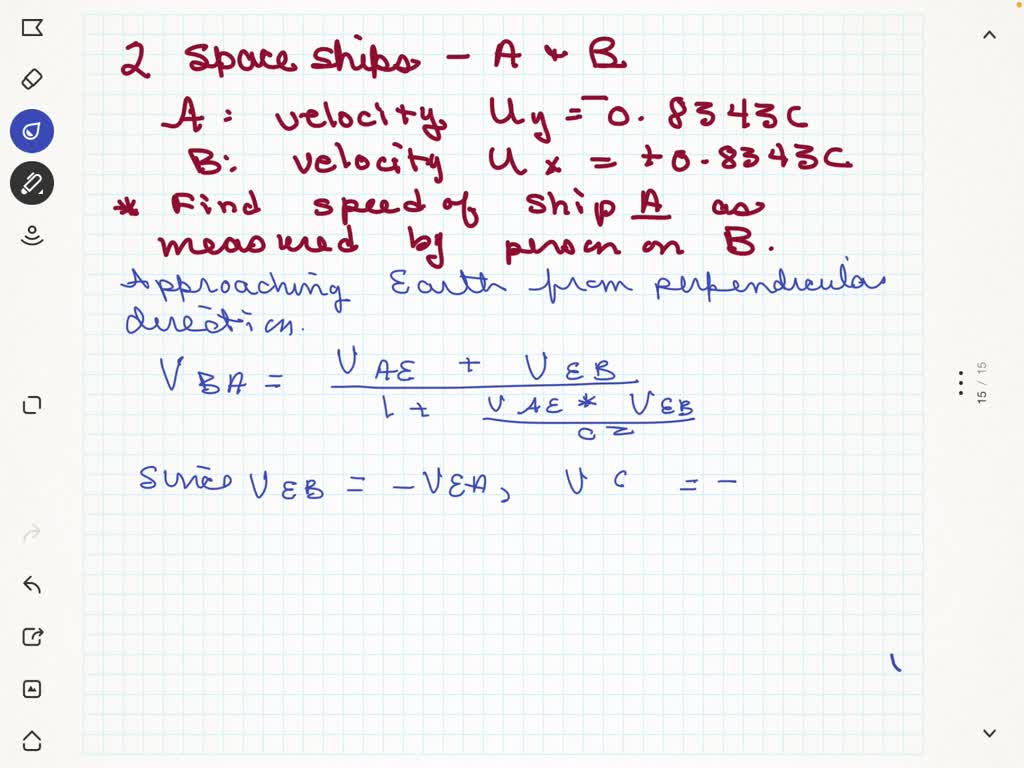 2 Space ships - A + B
A: velocity, Uy = -0.8343c
B: velocity Ux = +0.8343c
* Find speed of ship A as
measured by person on B.
Approaching Earth from perpendicular
direction.
VBA = VAE + VEB
1 + VAE * VEB
c2
Since VEB = -VEA, V c = -
15 / 15